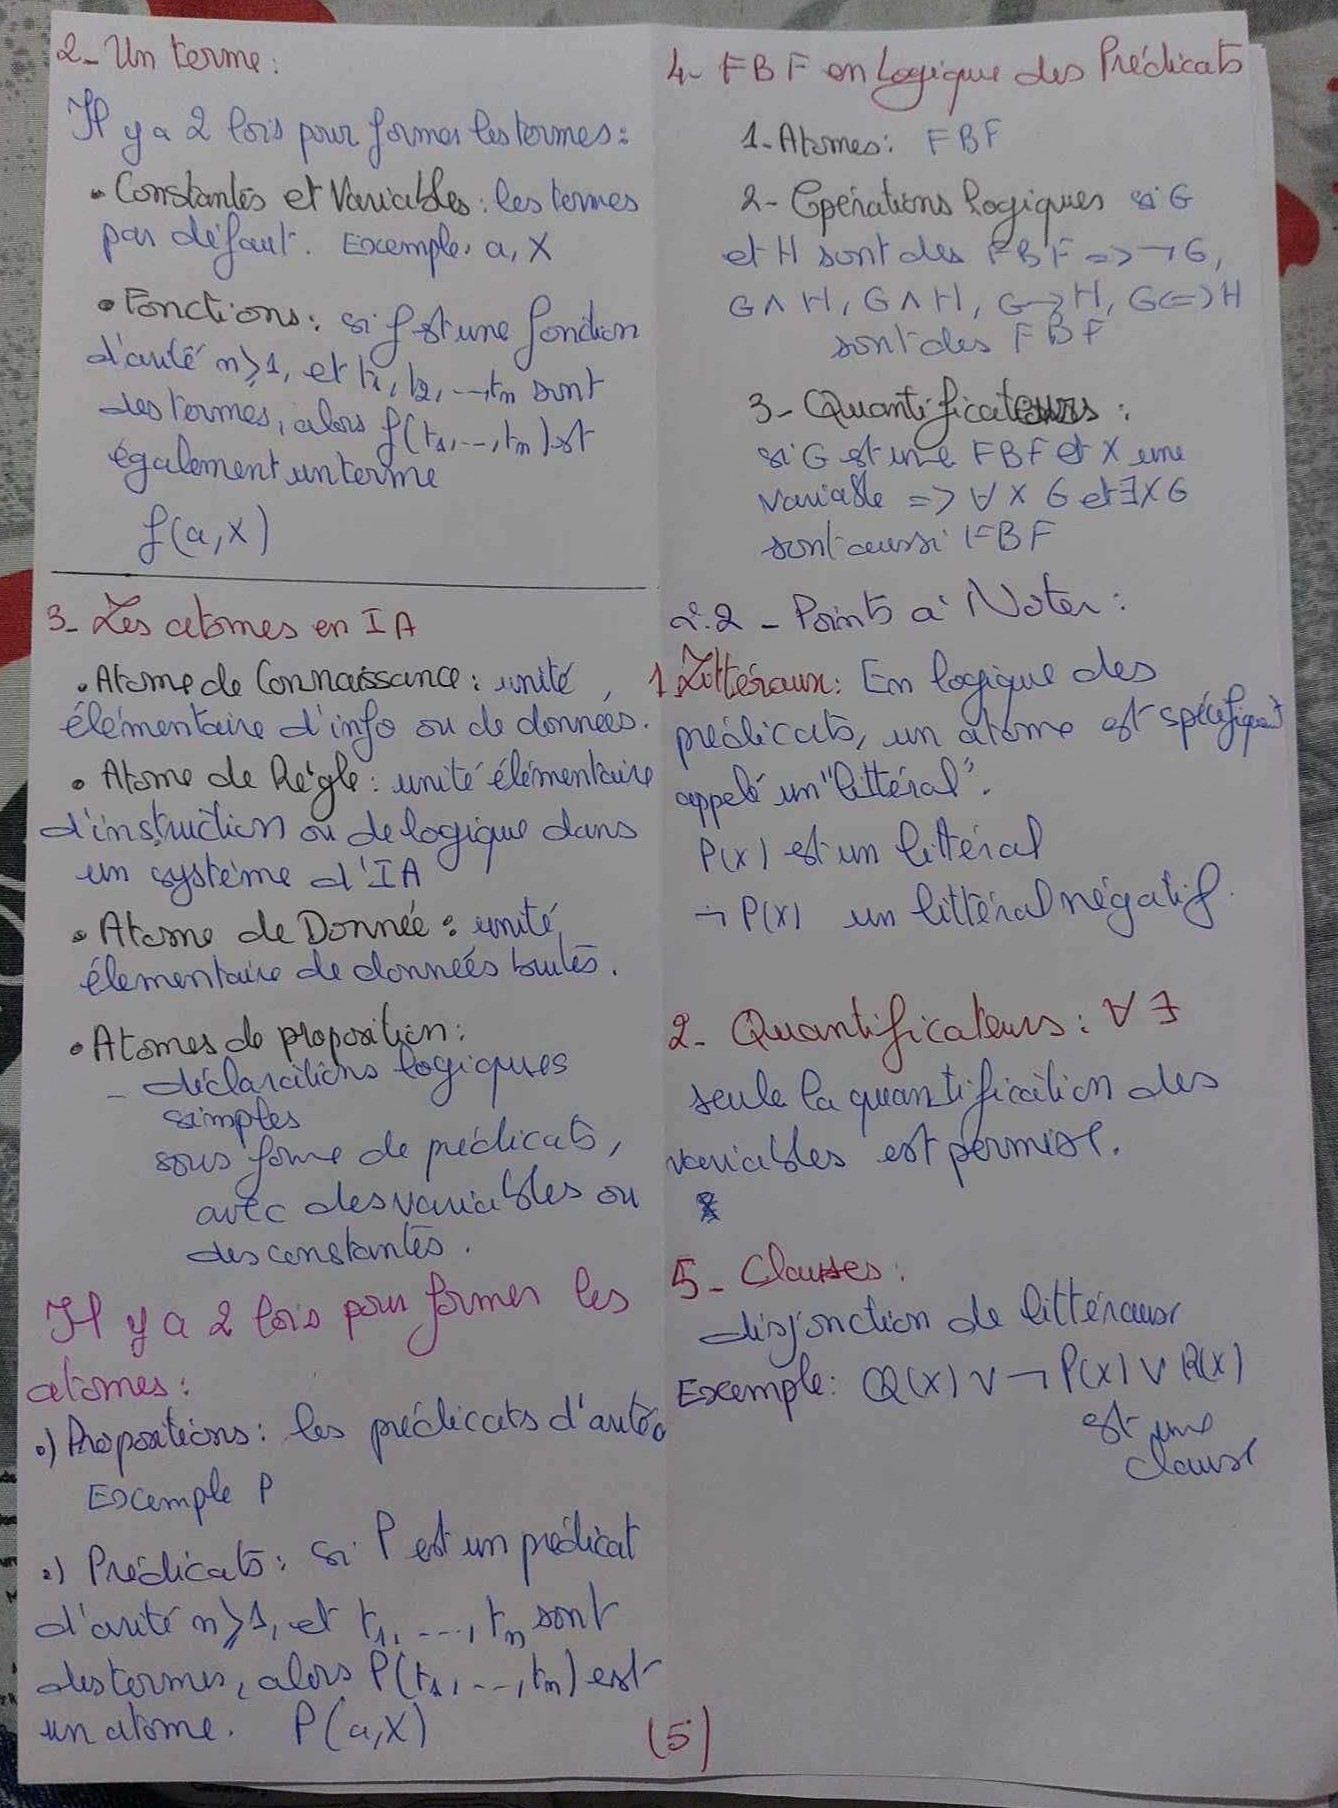 2- Un terme:
Il y a 2 lois pour former les termes:
• Constantes et Variables: les termes
par défaut. Exemple: a, X
• Fonctions: si f est une fonction
d'arité n⩾1, et t1, t2, ..., tn sont
des termes, alors f(t1, ..., tn) est
également un terme
f(a,X)
3- Les atomes en IA
• Atome de Connaissance: unité
élémentaire d'info ou de données.
• Atome de Règle: unité élémentaire
d'instruction ou de logique dans
un système d'IA
• Atome de Donnée: unité
élementaire de données brutes.
• Atomes de proposition:
- déclarations logiques
simples
sous forme de prédicats,
avec des variables ou
des constantes.
Il y a 2 lois pour former les
atomes:
•) Propositions: les prédicats d'arité 0
Exemple P
•) Prédicats: si P est un prédicat
d'arité n⩾1, et t1, ..., tn sont
des termes, alors P(t1, ..., tn) est
un atome. P(a,X)
4- FBF en Logique des Prédicats
1- Atomes: FBF
2- Opérations logiques si G
et H sont des FBF => ¬G,
G∧H, G∧H, G→H, G<=>H
sont des FBF
3- Quantificateurs:
si G est une FBF et X une
variable => ∀X G et ∃X G
sont aussi FBF
2.2 - Points à Noter:
1 Littéraux: En logique des
prédicats, un atome est spécifiquemt
appelé un "littéral".
P(X) est un littéral
¬P(X) un littéral négatif.
2- Quantificateurs: ∀ ∃
seule la quantification des
variables est permise.
5- Clauses:
disjonction de littéraux
Exemple: Q(X) ∨ ¬P(X) ∨ R(X)
est une
clause
(5)